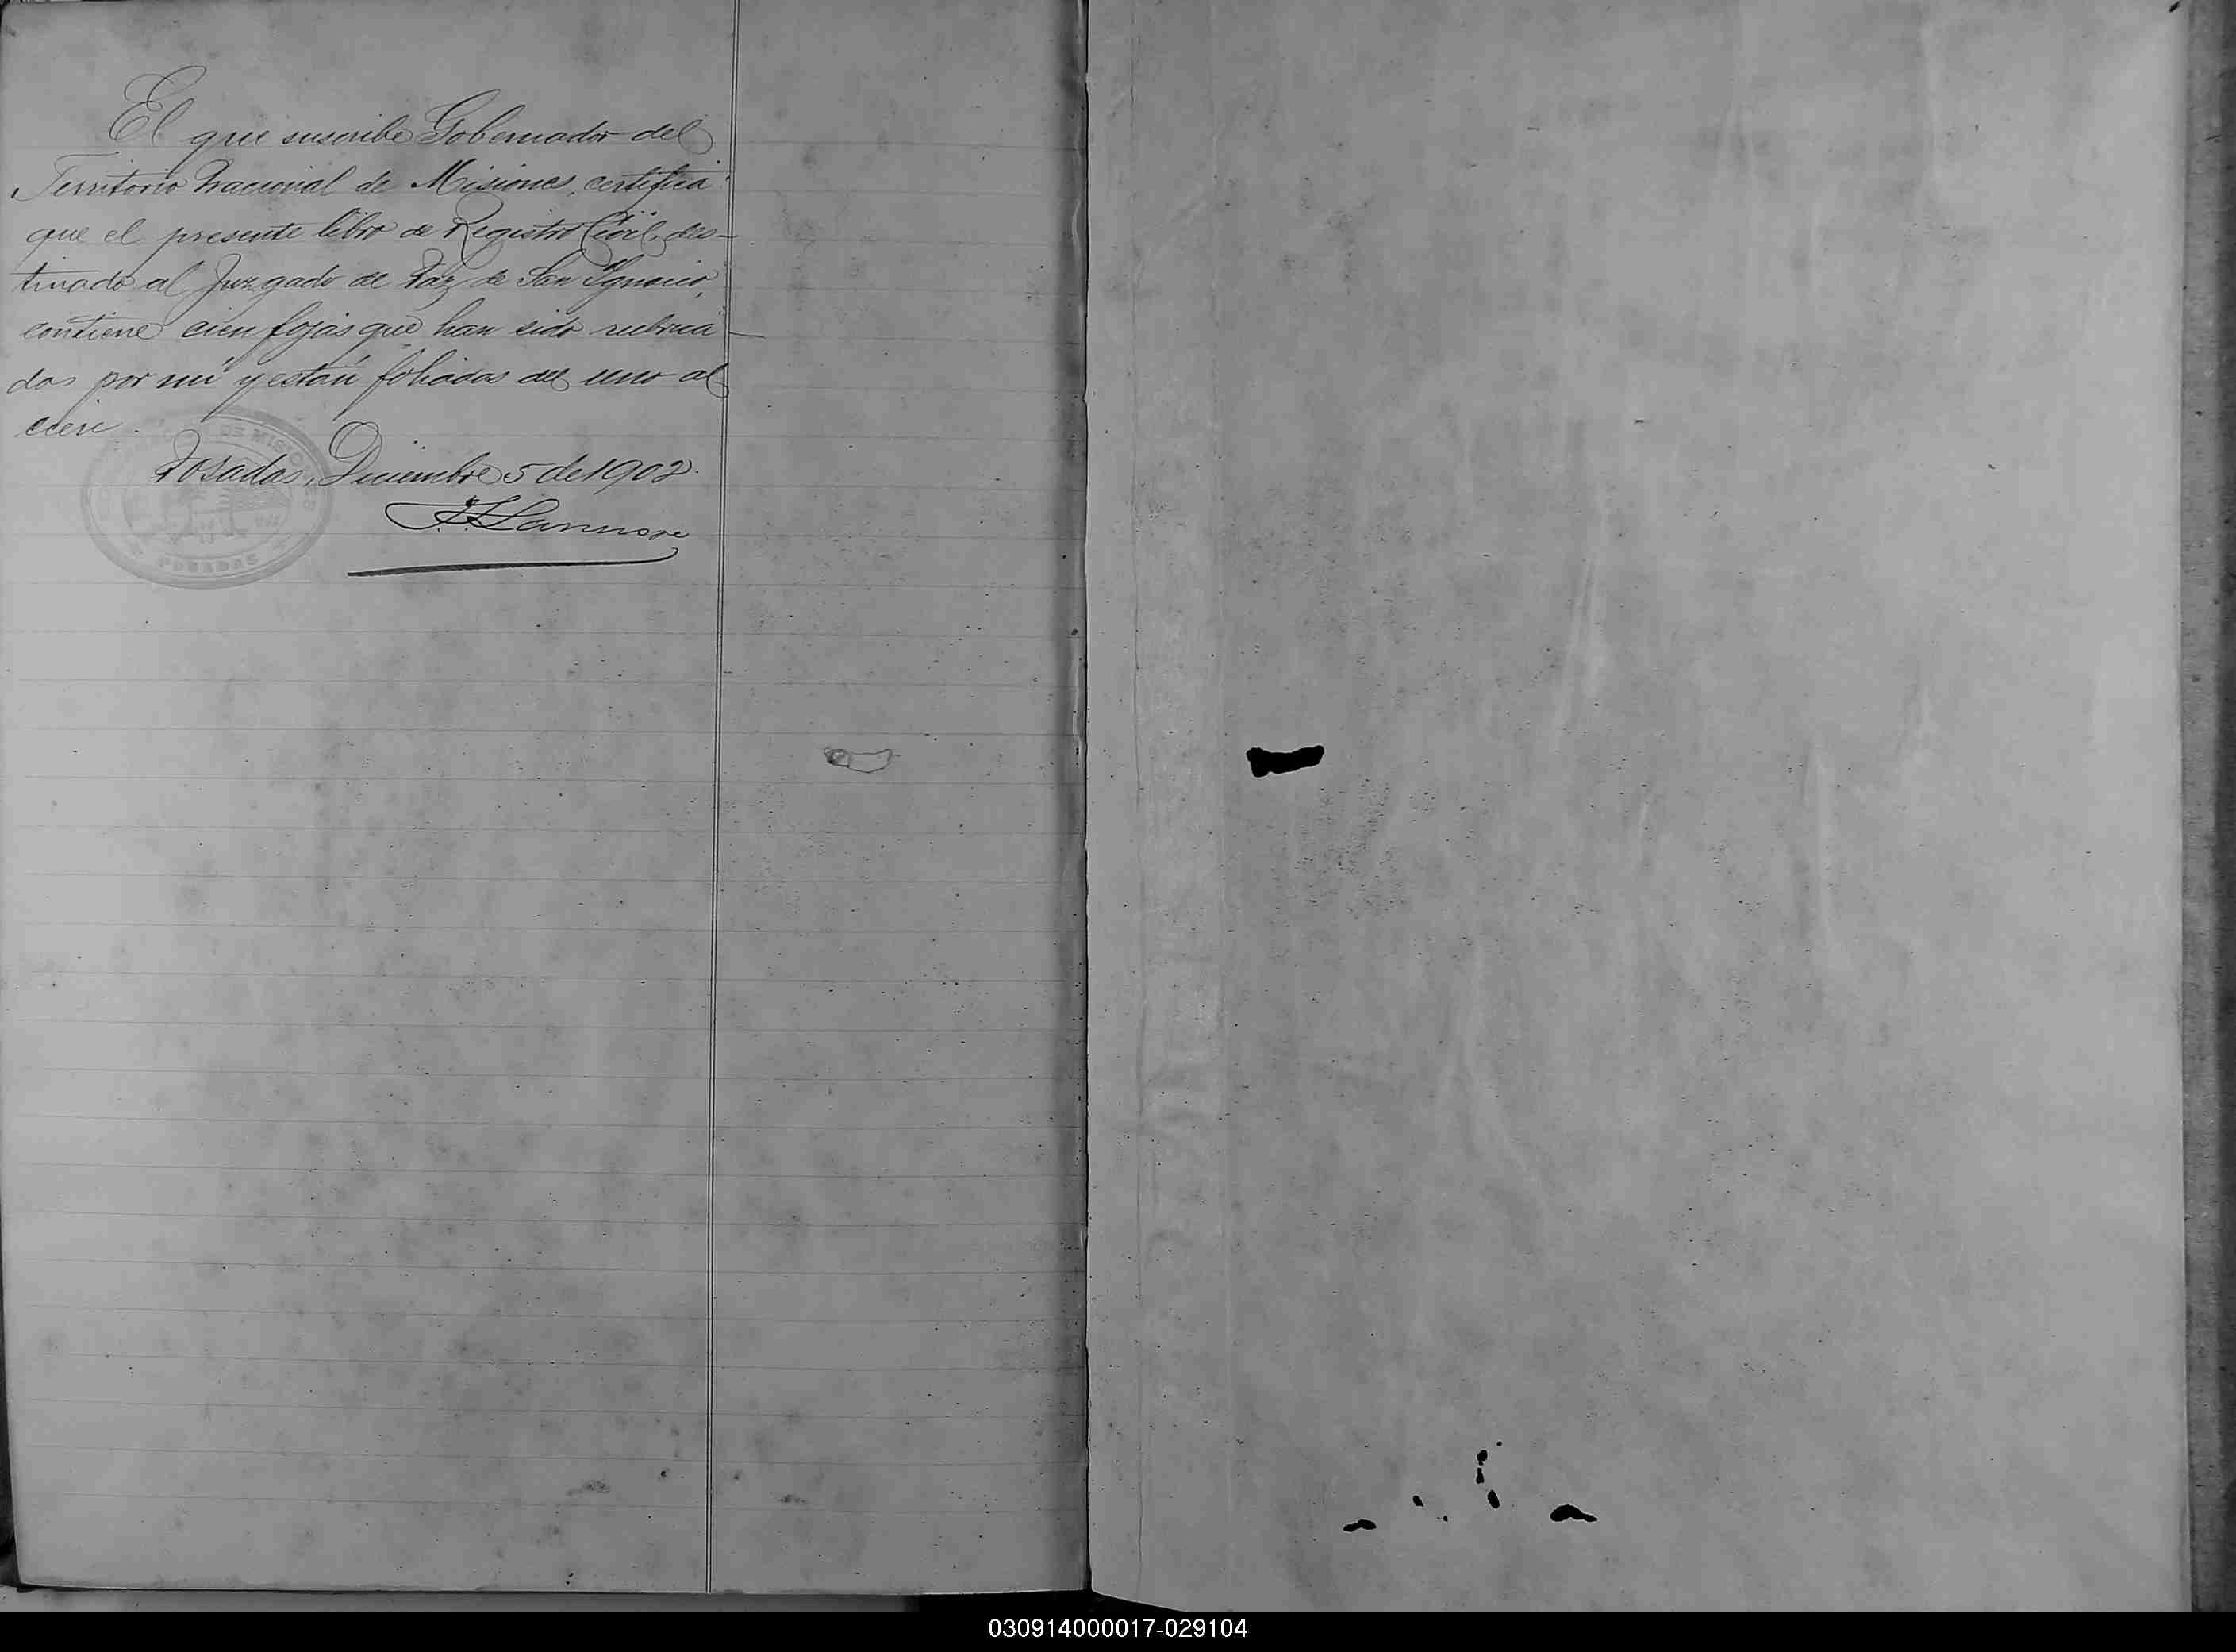 El que suscribe Gobernador del
Territorio Nacional de Misiones, certifica:
que el presente libro de Registro Civil, des-
tinado al Juzgado de Paz de San Ignacio,
contiene cien fojas que han sido rubrica-
das por mí y están foliadas del uno al
cien.
Posadas, Diciembre 5 de 1902.
J. J. Lanusse
DE MISIONES
POSADAS
030914000017-029104